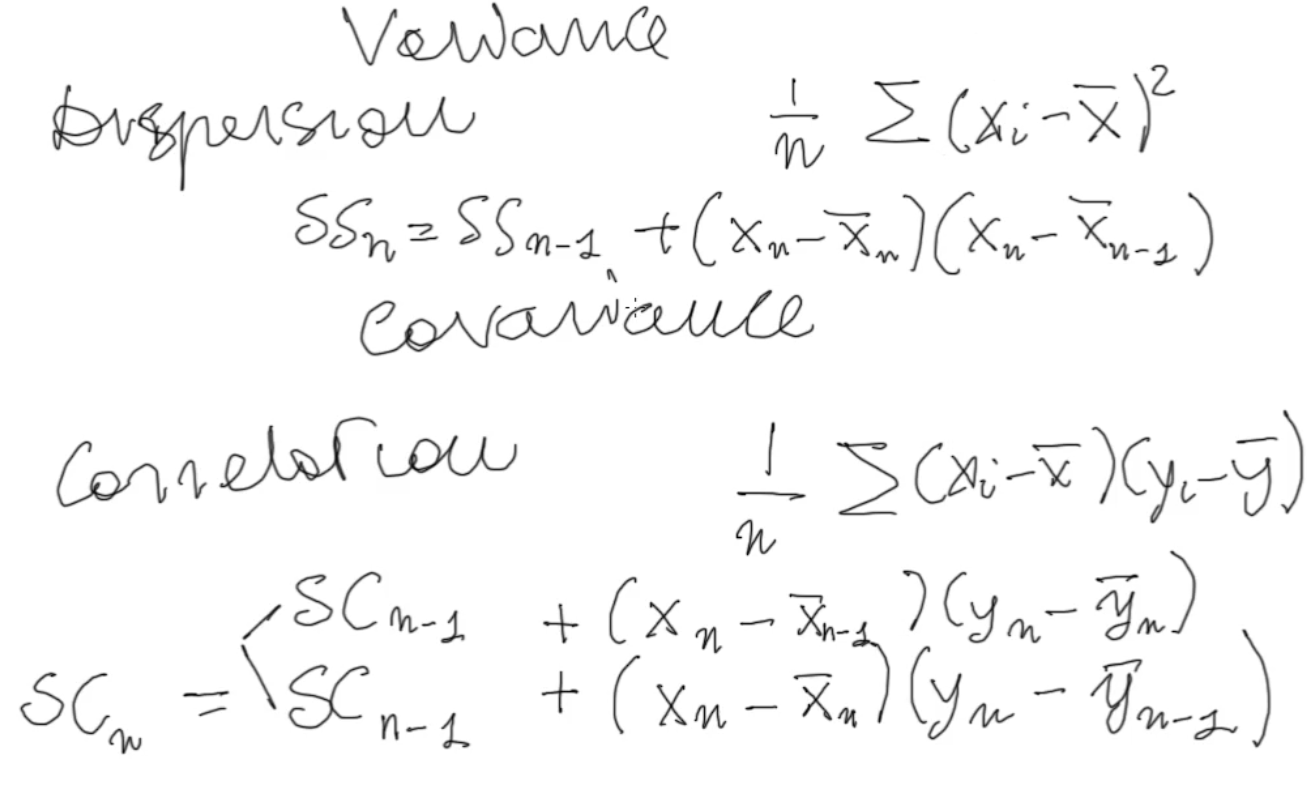 Variance
Dispersion
1/n Σ(xᵢ-x̄)²
SSₙ = SSₙ₋₁ + (xₙ-x̄ₙ)(xₙ-x̄ₙ₋₁)
Covariance
Correlation
1/n Σ(xᵢ-x̄)(yᵢ-ȳ)
SCₙ₋₁ + (xₙ-x̄ₙ₋₁)(yₙ-ȳₙ)
SCₙ = SCₙ₋₁ + (xₙ-x̄ₙ)(yₙ-ȳₙ₋₁)